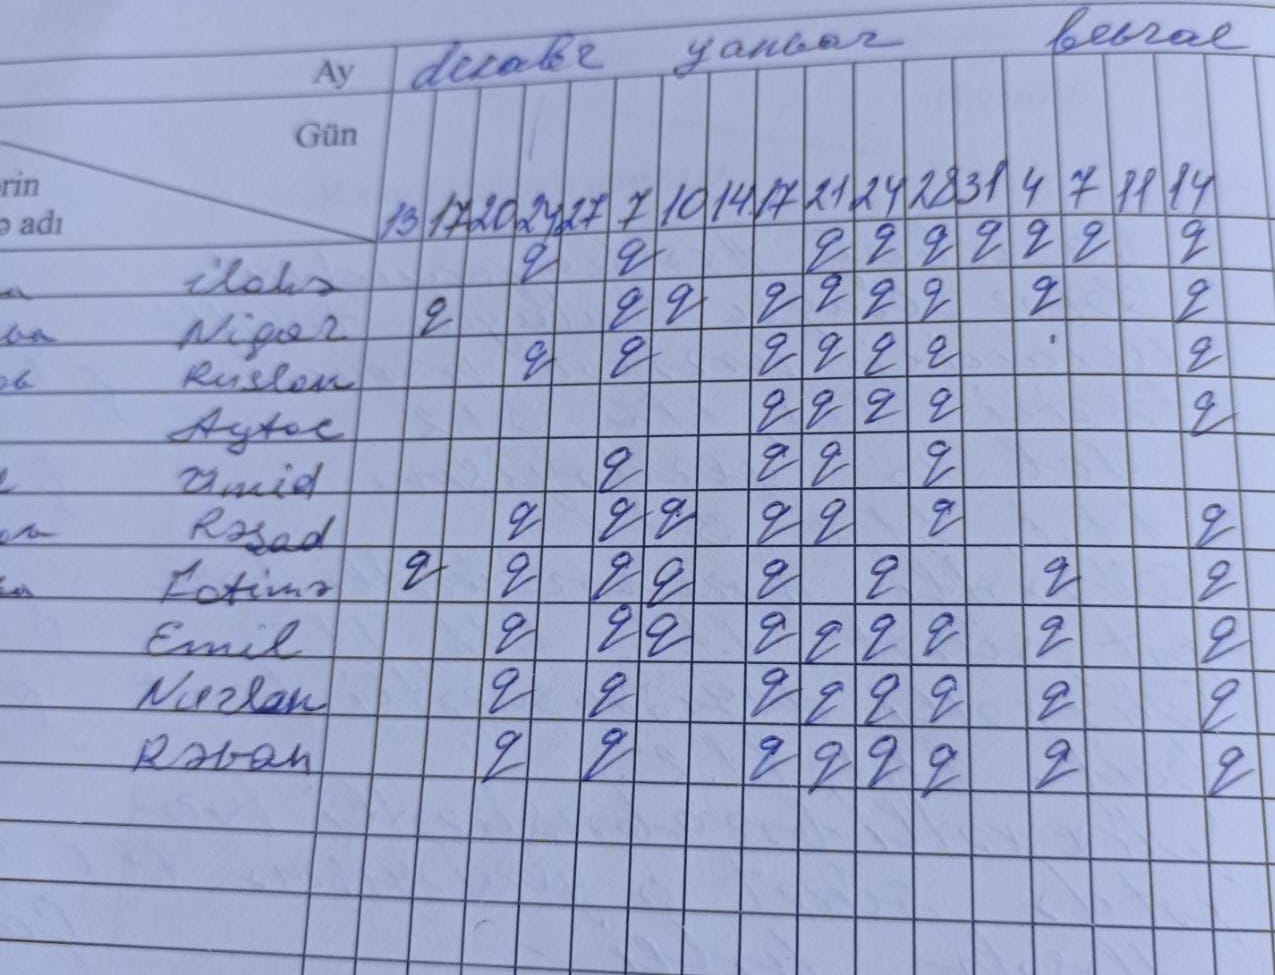 Ay dekabr yanvar fevral
Gün
rin
ə adı 13 17 20 24 27 7 10 14 17 21 24 28 31 4 7 11 14
İlahə q q q q q q q q q
va Nigar q q q q q q q q q
ov Ruslan q q q q q q q
Aytac q q q q q
Ümid q q q q
Rəşad q q q q q q q
Fatimə q q q q q q q q
Emil q q q q q q q q q
Nurlan q q q q q q q q
Rəvan q q q q q q q q